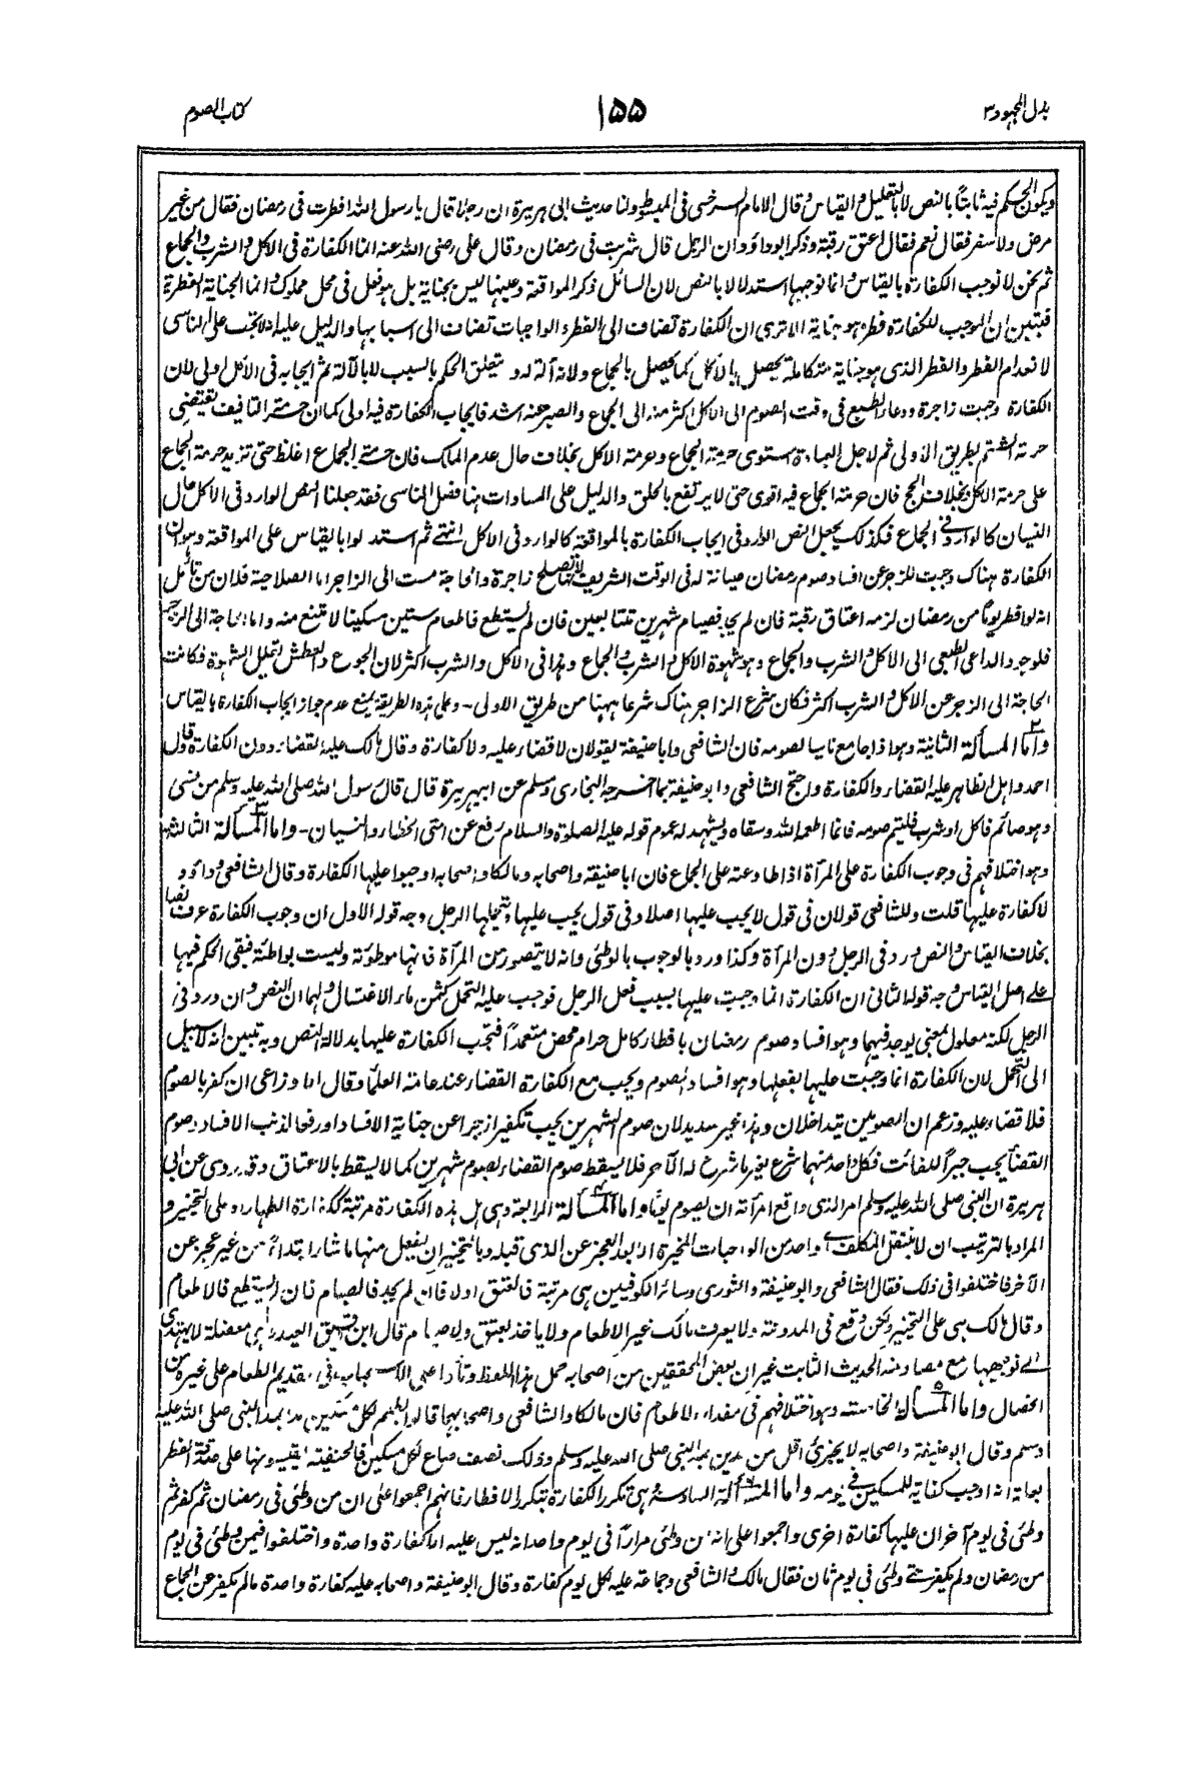 بذل المجهود ٣
١٥٥
كتاب الصوم
ويكون الحكم فيه ثابتاً بالنص لا بالتعليل والقياس وقال الامام السرخسي في المبسوط ولنا حديث ابي هريرة ان رجلا قال يا رسول الله افطرت في رمضان فقال من غير
مرض ولا سفر فقال نعم فقال اعتق رقبة وذكر ابوداؤد ان الرجل قال شربت في رمضان وقال علي رضي الله عنه انما الكفارة في الاكل والشرب والجماع
ثم نحن لا نوجب الكفارة بالقياس وانما نوجبها استدلالا بالنص لان السائل ذكر المواقعة وعينها ليس بجناية بل هو فعل في محل مملوك وانما الجناية الفطرية
فتبين ان الموجب للكفارة فطر هو جناية الا ترى ان الكفارة تضاف الى الفطر والواجبات تضاف الى اسبابها والدليل عليه انه لا تجب على الناسي
لانعدام الفطر والفطر الذي هو جناية متكاملة يحصل بالاكل كما يحصل بالجماع ولانه آلة له ويتعلق الحكم بالسبب لا بالآلة ثم ايجابه في الاكل اولى لان
الكفارة وجبت زاجرة ودعاء الطبع في وقت الصوم الى الاكل اكثر منه الى الجماع والصبر عنه اشد فايجاب الكفارة فيه اولى كما ان حرمة التافيف تقتضي
حرمة الشتم بطريق الاولى ثم لاجل الاباحة مستوى حرمة الجماع وحرمة الاكل بخلاف حال عدم الملك فان حرمة الجماع اغلظ حتى تزيد حرمة الجماع
على حرمة الاكل وبخلاف الحج فان حرمة الجماع فيه اقوى حتى لا يرتفع بالحلق والدليل على المساوات هنا فصل الناسي فقد جعلنا النص الوارد في الاكل حال
النسيان كالوارد في الجماع فكذلك يجعل النص الوارد في ايجاب الكفارة بالمواقعة كالوارد في الاكل انتهى ثم استدلوا بالقياس على المواقعة وهو ان
الكفارة هناك وجبت للزجر عن افساد صوم رمضان صيانة له في الوقت الشريف لانها تصلح زاجرة والحاجة مست الى الزاجر اما الصلاحية فلان من تأمل
انه لو افطر يوماً من رمضان لزمه اعتاق رقبة فان لم يجد فصيام شهرين متتابعين فان لم يستطع فاطعام ستين مسكينا لامتنع منه واما الحاجة الى الزجر
فلوجود الداعي الطبعي الى الاكل والشرب والجماع وهو شهوة الاكل والشرب والجماع وهذا في الاكل والشرب اكثر لان الجوع والعطش تقليل الشهوة فكانت
الحاجة الى الزجر عن الاكل والشرب اكثر فكان شرع الزاجر هناك شرعا ههنا من طريق الاولى - وعلى هذه الطريقة يمنع عدم جواز ايجاب الكفارة بالقياس
واما المسألة الثانية وهو اذا جامع ناسيا لصومه فان الشافعي وابا حنيفة يقولان لا قضاء عليه ولا كفارة وقال مالك عليه القضاء دون الكفارة وقال
احمد واهل الظاهر عليه القضاء والكفارة واحتج الشافعي وابو حنيفة بما اخرجه البخاري ومسلم عن ابي هريرة قال قال رسول الله صلى الله عليه وسلم من نسي
وهو صائم فاكل او شرب فليتم صومه فانما اطعمه الله وسقاه ويشهد له عموم قوله عليه الصلوة والسلام رفع عن امتي الخطاء والنسيان - واما المسألة الثالثة
وهو اختلافهم في وجوب الكفارة على المرأة اذا طاوعته على الجماع فان ابا حنيفة واصحابه ومالكا واصحابه اوجبوا عليها الكفارة وقال الشافعي وداؤد
لا كفارة عليها قلت وللشافعي قولان في قول لا يجب عليها اصلا وفي قول يجب عليها ويتحملها الرجل وجه قوله الاول ان وجوب الكفارة عرف نصا
بخلاف القياس والنص ورد في الرجل دون المرأة وكذا ورد بالوجوب بالوطئ وانه لا يتصور من المرأة فانها موطوئة وليست بواطئة فبقي الحكم فيها
على اصل القياس وجه قوله الثاني ان الكفارة انما وجبت عليها بسبب فعل الرجل فوجب عليه التحمل كثمن ماء الاغتسال ولهما ان النص وان ورد في
الرجل لكنه معلول بمعنى يوجد فيهما وهو افساد صوم رمضان بافطار كامل حرام محض متعمداً فتجب الكفارة عليها بدلالة النص وبه تبين انه لا سبيل
الى التحمل لان الكفارة انما وجبت عليها بفعلها وهو افساد الصوم ويجب مع الكفارة القضاء عند عامة العلماء وقال اوزاعي ان كفر بالصوم
فلا قضاء عليه وزعم ان الصومين يتداخلان وهذا غير سديد لان صوم الشهرين يجب تكفيرا زجرا عن جناية الافساد او رفعا لذنب الافساد وصوم
القضاء يجب جبراً للفائت فكل واحد منهما شرع لغير ما شرع له الآخر فلا يسقط صوم القضاء بصوم شهرين كما لا يسقط بالاعتاق وقد روى عن ابي
هريرة ان النبي صلى الله عليه وسلم امر الذي واقع امرأته ان يصوم يوماً واما المسألة الرابعة وهي هل هذه الكفارة مرتبة ككفارة الظهار او على التخيير و
المراد بالترتيب ان لا ينتقل المكلف الى واحد من الواجبات المخيرة الا بعد العجز عن الذي قبله وبالتخيير ان يفعل منها ما شاء ابتداءً من غير عجز عن
الآخر فاختلفوا في ذلك فقال الشافعي وابو حنيفة والثوري وسائر الكوفيين هي مرتبة فالعتق اولا فان لم يجد فالصيام فان لم يستطع فالاطعام
وقال مالك هي على التخيير ولكن وقع في المدونة ولا يعرف مالك غير الاطعام ولا ياخذ بعتق ولا صيام قال ابن دقيق العيد وهي معضلة لا يهتدى
الى توجيهها مع مصادمة الحديث الثابت غير ان بعض المحققين من اصحابه حمل هذا اللفظ وتأوله على الاستحباب في تقديم الطعام على غيره من
الخصال واما المسألة الخامسة وهو اختلافهم في مقدار الاطعام فان مالكا والشافعي واصحابهما قالوا يطعم لكل مسكين مد بمد النبي صلى الله عليه
وسلم وقال ابو حنيفة واصحابه لا يجزئ اقل من مدين بمد النبي صلى الله عليه وسلم وذلك نصف صاع لكل مسكين فالحنفية يقيسونها على صدقة الفطر
بجامع انه اوجب كفاية للمسكين في يومه واما المسألة السادسة وهي تكرر الكفارة بتكرر الافطار فانهم اجمعوا على ان من وطئ في رمضان ثم كفر ثم
وطئ في يوم آخر ان عليها كفارة اخرى واجمعوا على انه من وطئ مراراً في يوم واحد انه ليس عليه الا كفارة واحدة واختلفوا فيمن وطئ في يوم
من رمضان ولم يكفر حتى وطئ في يوم ثان فقال مالك والشافعي وجماعة عليه لكل يوم كفارة وقال ابو حنيفة واصحابه عليه كفارة واحدة مالم يكفر عن الجماع